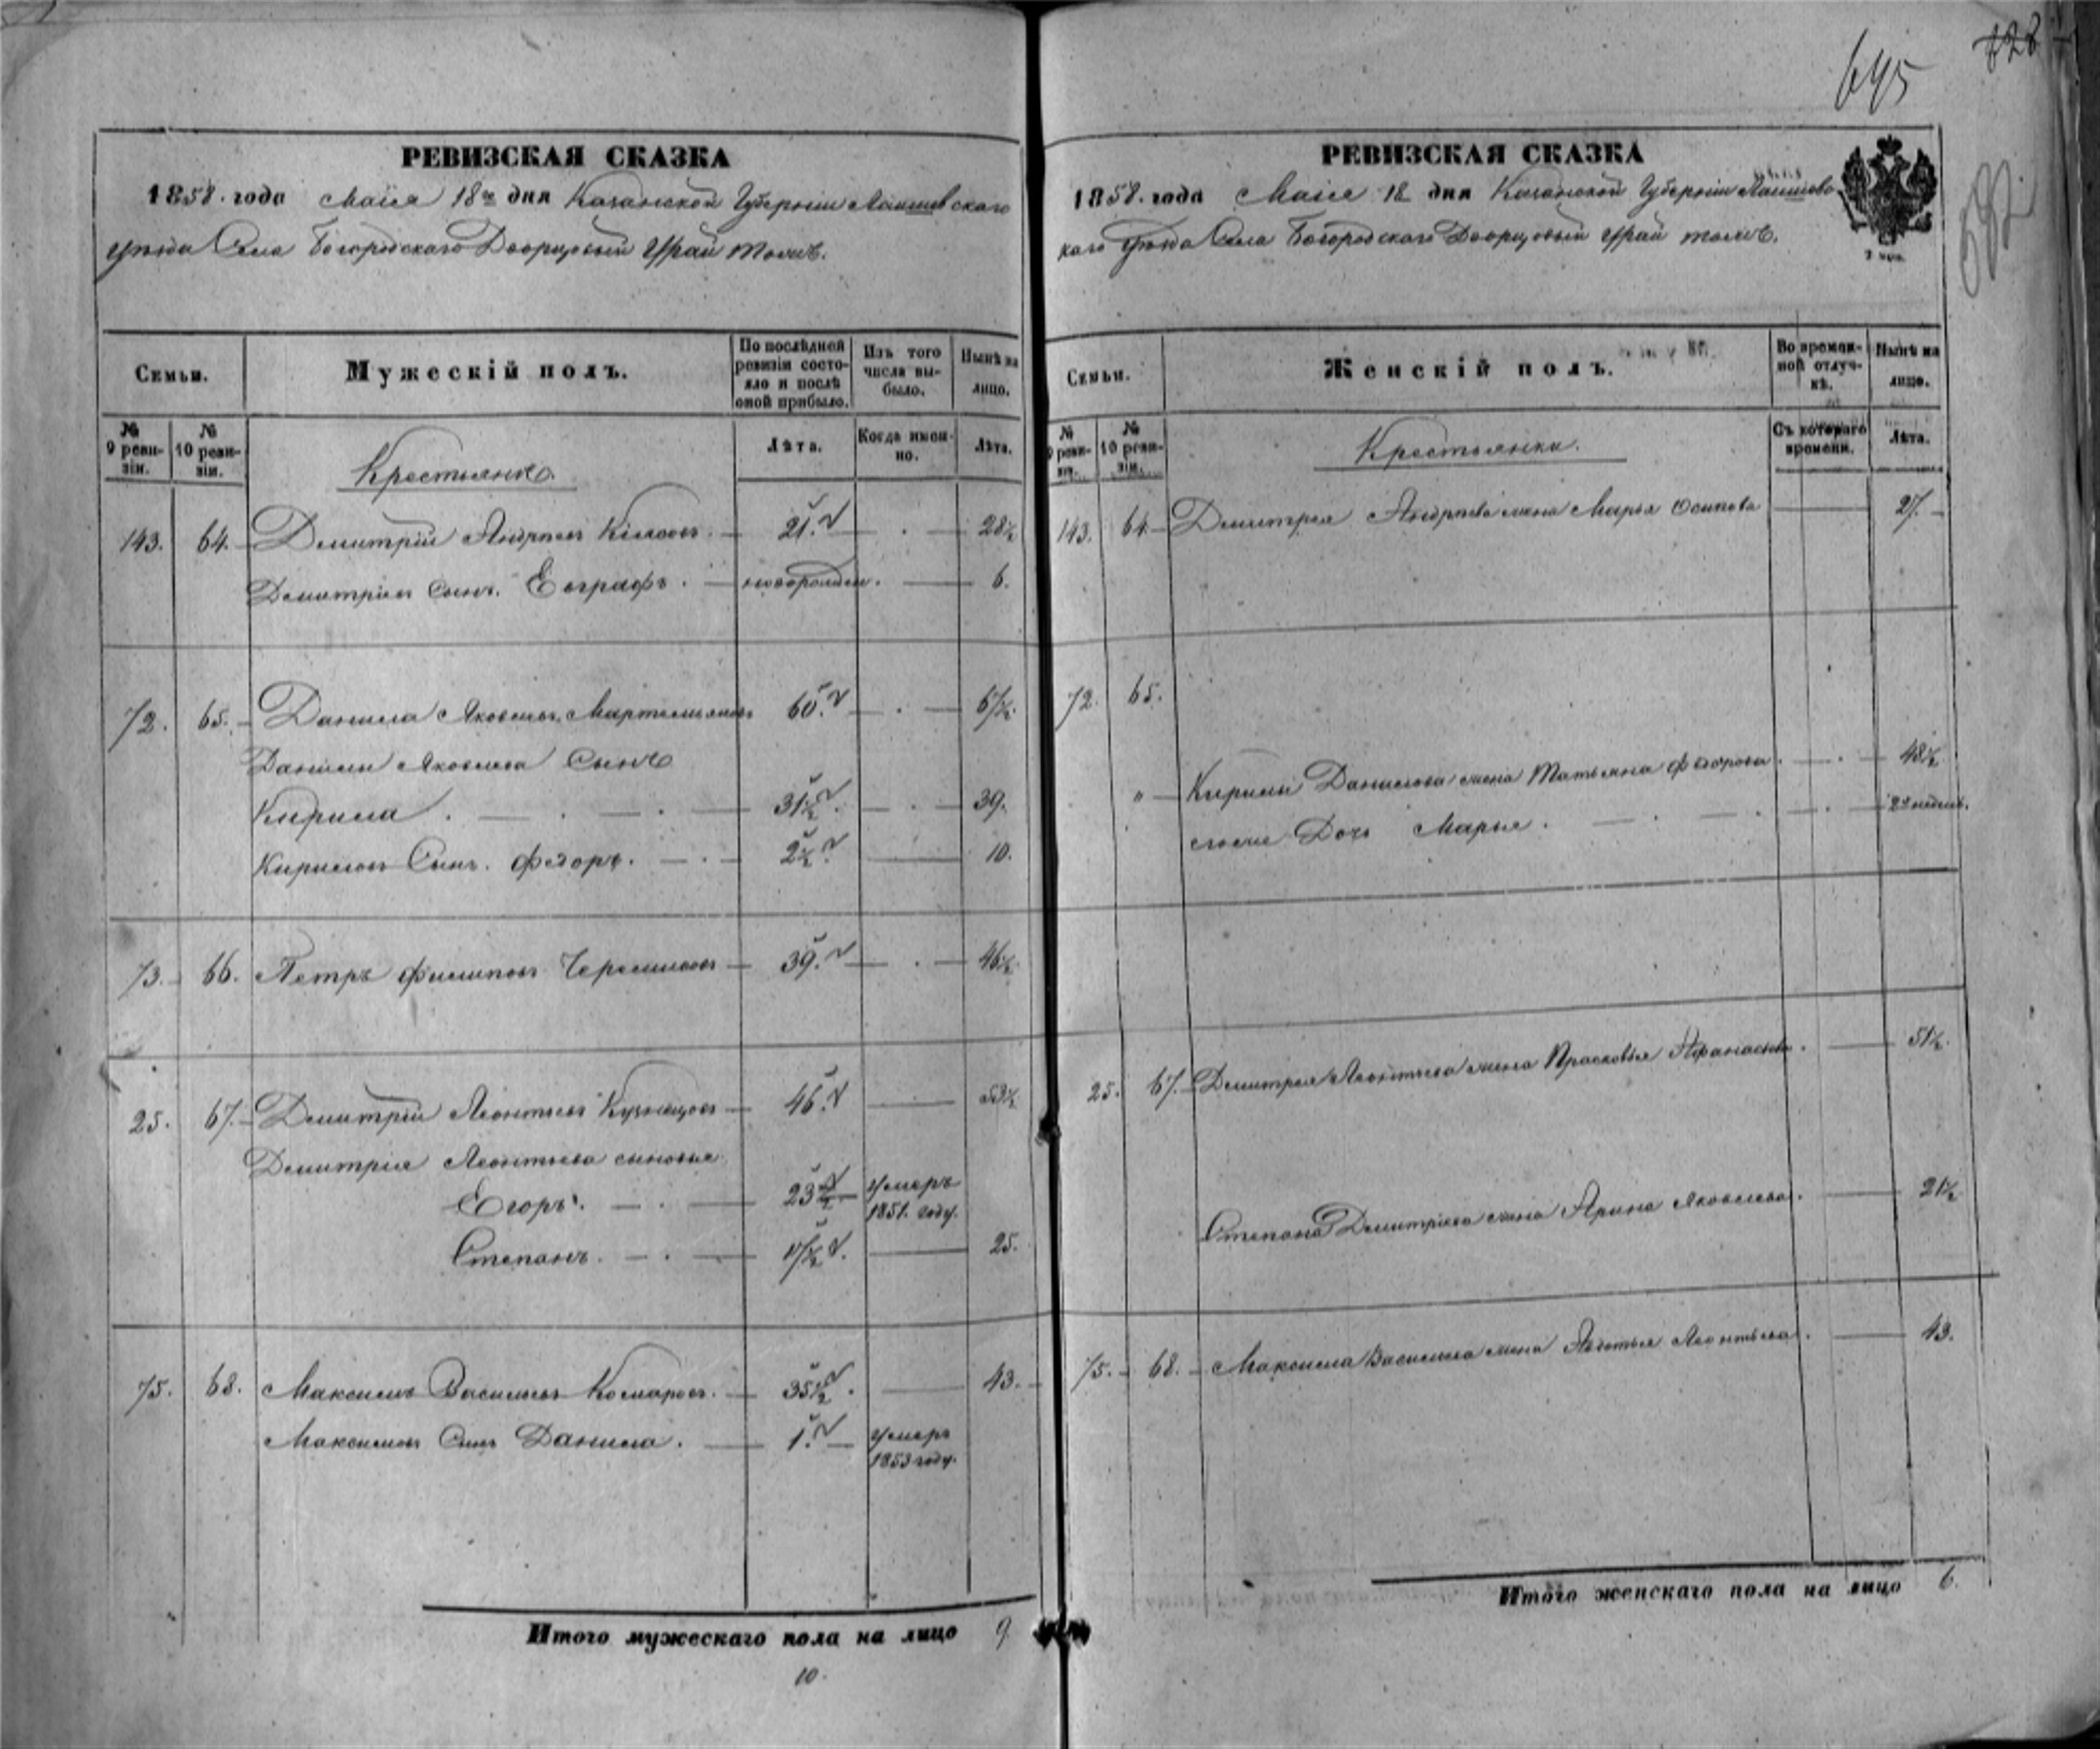 645
728
592
РЕВИЗСКАЯ СКАЗКА
1858. года Маія 18го дня Казанской Губерніи Лаишевскаго
уѣзда Села Богородскаго Дворцовый Урай тожъ.
Семьи.
Мужескій полъ.
По послѣдней ревизіи состояло и послѣ оной прибыло.
Изъ того числа выбыло.
Нынѣ на лицо.
№ 9 ревизіи.
№ 10 ревизіи.
Крестьяне.
Лѣта.
Когда именно.
Лѣта.
143. 64. Димитрій Андреевъ 21. 28½
Димитріевъ Сынъ. Евграфъ. новорожден. 6.
72. 65. Данила Яковлевъ Мартемьяновъ 60. 67½
Данилы Яковлева Сынъ
Кирила 31½ 39.
Кириловъ Сынъ. Федоръ. 2½ 10.
73. 66. Петръ Филиповъ 39. 46½
25. 67. Димитрій Леонтьевъ Кузнецовъ 46. 53½
Димитрія Леонтьева сыновья
Егоръ. 23½ умеръ 1851. году.
Степанъ. 17½ 25.
75. 68. Максимъ Васильевъ Комаровъ. 35½ 43.
Максимовъ Сынъ Данила. 1. умеръ 1853 году.
Итого мужескаго пола на лицо 9.
10.
РЕВИЗСКАЯ СКАЗКА
1858. года Маія 18 дня Казанской Губерніи Лаишевс-
каго уѣзда Села Богородскаго Дворцовый Урай тожъ.
Семьи.
Женскій полъ.
Во временной отлучкѣ.
Нынѣ на лицо.
№ 9 ревизіи.
№ 10 ревизіи.
Крестьянки.
Съ котораго времени.
Лѣта.
143. 64. Димитрія Андреева жена Марья Осипова 27.
72. 65.
" Кирилы Данилова жена Татьяна Федорова. 48½
Дочь Марья. недель.
25. 67. Димитрія Леонтьева жена Прасковья Афанасьева. 51½
Степана Димитріева жена Арина Яковлева. 21½
75. 68. Максима Васильева жена Авдотья Леонтьева. 43.
Итого женскаго пола на лицо 6.